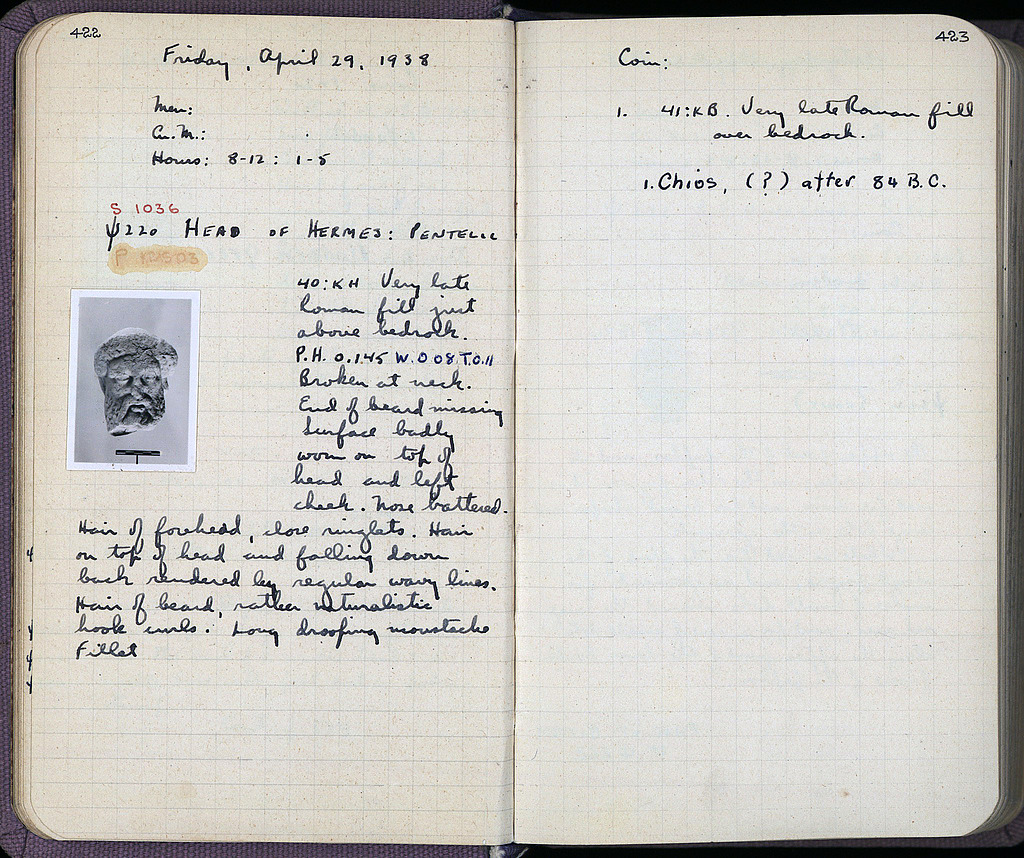 422
Friday, April 29, 1938
Men:
Gr. M.:
Hours: 8-12: 1-5
S 1036
ψ220 HEAD OF HERMES: PENTELIC
40:KH Very late
Roman fill just
above bedrock.
P.H. 0.145 W. 0.08 T. 0.11
Broken at neck.
End of beard missing
Surface badly
worn on top of
head and left
cheek. Nose battered.
Hair of forehead, close ringlets. Hair
on top of head and falling down
back rendered by regular wavy lines.
Hair of beard, rather naturalistic
hook curls. Long drooping moustache
Fillet
423
Coin:
1. 41:KB. Very late Roman fill
over bedrock.
1. Chios, (?) after 84 B.C.